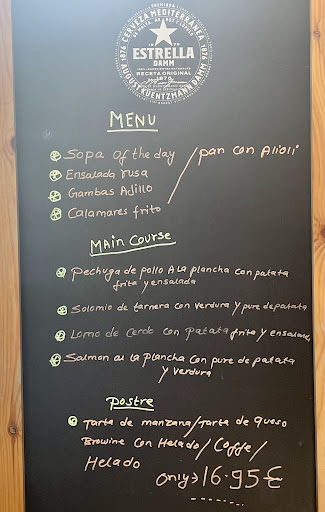 CERVEZA MEDITERRÁNEA
1876
ESTRELLA
DAMM
RECETA ORIGINAL
1876
AUGUST KUENTZMANN DAMM
MENU
Sopa of the day / pan con Alioli
Ensalada rusa
Gambas AJillo
Calamares frito
Main Course
Pechuga de pollo A la plancha con patata
frita y ensalada
Solomio de tarnera con verdura y pure de patata
Lomo de Cerdo con Patata frita y ensalada
Salmon au la Plancha con pure de patata
y verdura
Postre
Tarta de manzana/tarta de queso
Browine con Helado/Coffe/
Helado
only → 16.95€